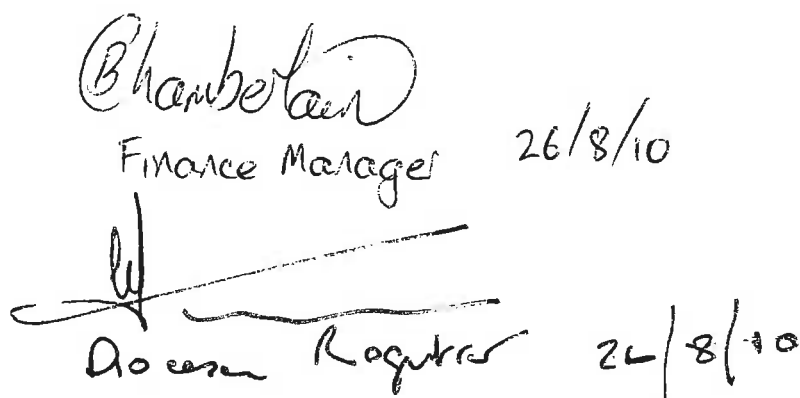 BChamberlain
Finance Manager 26/8/10
Diocesan Registrar 26/8/10